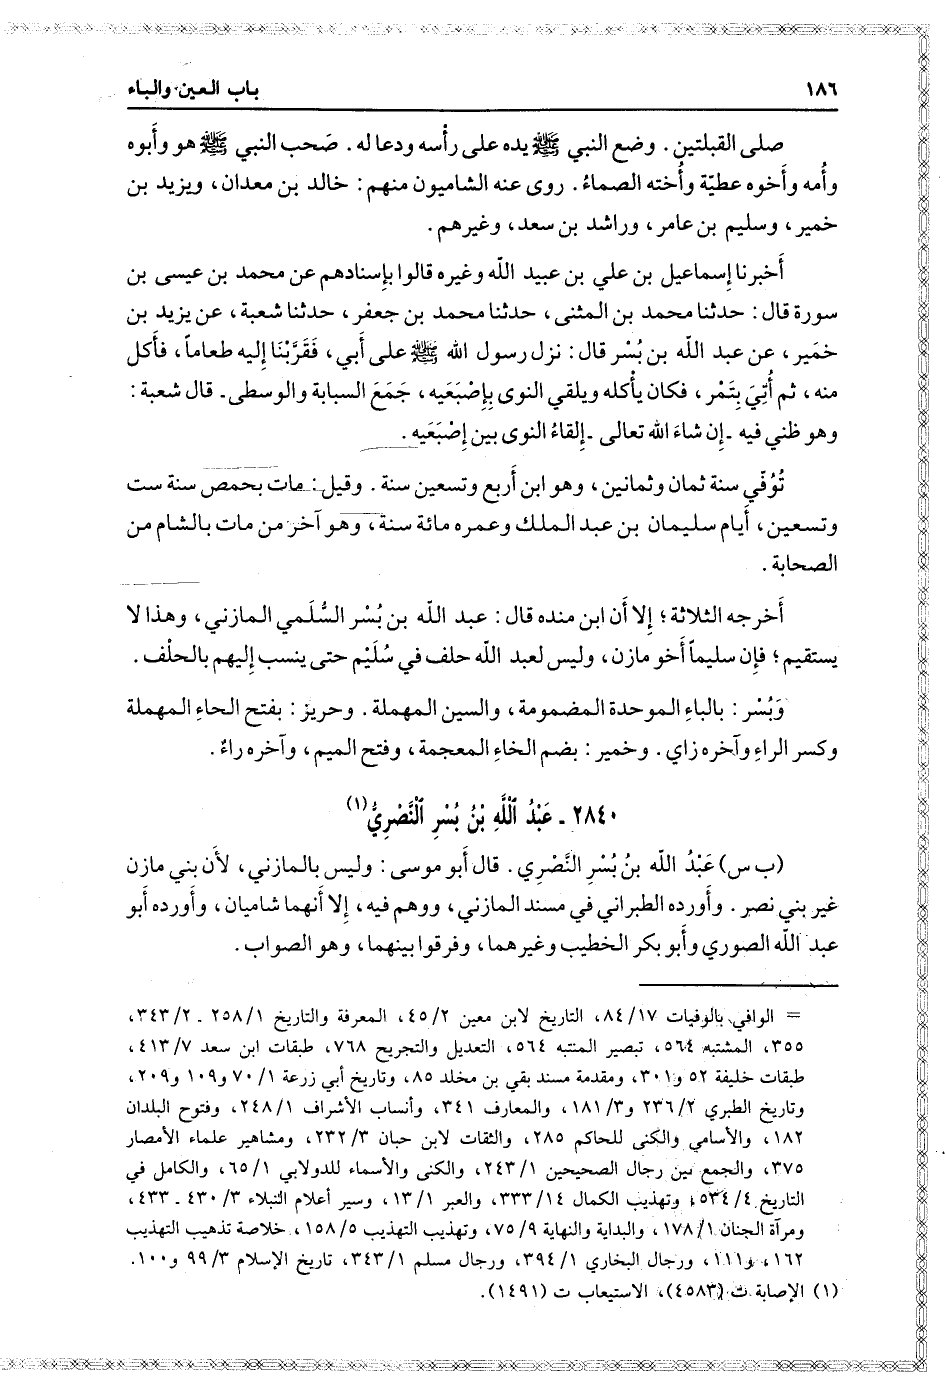 ١٨٦
باب العين والباء
صلى القبلتين. وضع النبي ﷺ يده على رأسه ودعا له. صَحب النبي ﷺ هو وأبوه
وأُمه وأَخوه عطيّة وأُخته الصماءُ. روى عنه الشاميون منهم: خالد بن معدان، ويزيد بن
خمير، وسليم بن عامر، وراشد بن سعد، وغيرهم.
أَخبرنا إِسماعيل بن علي بن عبيد اللّه وغيره قالوا بإِسنادهم عن محمد بن عيسى بن
سورة قال: حدثنا محمد بن المثنى، حدثنا محمد بن جعفر، حدثنا شعبة، عن يزيد بن
خمَير، عن عبد اللّه بن بُسْر قال: نزل رسول اللّه ﷺ على أَبي، فَقَرَّبْنَا إِليه طعاماً، فأَكل
منه، ثم أُتِيَ بِتَمْر، فكان يأْكله ويلقي النوى بِإِصْبَعَيه، جَمَعَ السبابة والوسطى ـ قال شعبة:
وهو ظني فيه ـ إِن شاءَ اللّه تعالى ـ إِلقاءُ النوى بين إِصْبَعَيه.
تُوُفّي سنة ثمان وثمانين، وهو ابن أَربع وتسعين سنة. وقيل: مات بحمص سنة ست
وتسعين، أَيام سليمان بن عبد الملك وعمره مائة سنة، وهو آخر من مات بالشام من
الصحابة.
أَخرجه الثلاثة؛ إِلا أَن ابن منده قال: عبد اللّه بن بُسْر السُّلَمي المازني، وهذا لا
يستقيم؛ فإِن سليماً أَخو مازن، وليس لعبد اللّه حلف في سُلَيْم حتى ينسب إِليهم بالحلْف.
وَبُسْر: بالباءِ الموحدة المضمومة، والسين المهملة. وحريز: بفتح الحاءِ المهملة
وكسر الراءِ وآخره زاي. وخمير: بضم الخاءِ المعجمة، وفتح الميم، وآخره راءٌ.
٢٨٤٠ ـ عَبْدُ اللَّهِ بْنُ بُسْرِ النَّصْرِيُّ(١)
(ب س) عَبْدُ اللّه بنُ بُسْرِ النَّصْرِي. قال أَبو موسى: وليس بالمازني، لأَن بني مازن
غير بني نصر. وأَورده الطبراني في مسند المازني، ووهم فيه، إِلا أَنهما شاميان، وأَورده أَبو
عبد اللّه الصوري وأَبو بكر الخطيب وغيرهما، وفرقوا بينهما، وهو الصواب.
= الوافي بالوفيات ١٧/ ٨٤، التاريخ لابن معين ٢/ ٤٥، المعرفة والتاريخ ١/ ٢٥٨ ـ ٢/ ٣٤٣،
٣٥٥، المشتبه ٥٦٤، تبصير المنتبه ٥٦٤، التعديل والتجريح ٧٦٨، طبقات ابن سعد ٧/ ٤١٣،
طبقات خليفة ٥٢ و٣٠١، ومقدمة مسند بقي بن مخلد ٨٥، وتاريخ أبي زرعة ١/ ٧٠ و١٠٩ و٢٠٩،
وتاريخ الطبري ٢/ ٢٣٦ و٣/ ١٨١، والمعارف ٣٤١، وأنساب الأشراف ١/ ٢٤٨، وفتوح البلدان
١٨٢، والأسامي والكنى للحاكم ٢٨٥، والثقات لابن حبان ٣/ ٢٣٢، ومشاهير علماء الأمصار
٣٧٥، والجمع بين رجال الصحيحين ١/ ٢٤٣، والكنى والأسماء للدولابي ١/ ٦٥، والكامل في
التاريخ ٤/ ٥٣٤، وتهذيب الكمال ١٤/ ٣٣٣، والعبر ١/ ١٣، وسير أعلام النبلاء ٣/ ٤٣٠ ـ ٤٣٣،
ومرآة الجنان ١/ ١٧٨، والبداية والنهاية ٩/ ٧٥، وتهذيب التهذيب ٥/ ١٥٨، خلاصة تذهيب التهذيب
١٦٢، و١١١، ورجال البخاري ١/ ٣٩٤، ورجال مسلم ١/ ٣٤٣، تاريخ الإسلام ٣/ ٩٩ و١٠٠.
(١) الإصابة ت (٤٥٨٣)، الاستيعاب ت (١٤٩١).